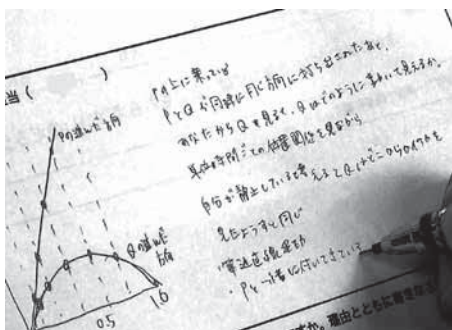 当(　　　)
Pの進んだ方向
Qの進んだ方向
0.5
1.0
Pの上に乗っていて
PとQが同時に同じ方向に打ち出されたあと、
あなたからQを見ると、Qはどのように動いて見えるか。
単位時間ごとの位置関係を見ながら
自分が静止していると考えるとQは
見たようすと同じ
・等速直線運動
・Pと一緒に付いてきている
すか。理由とともに書きな